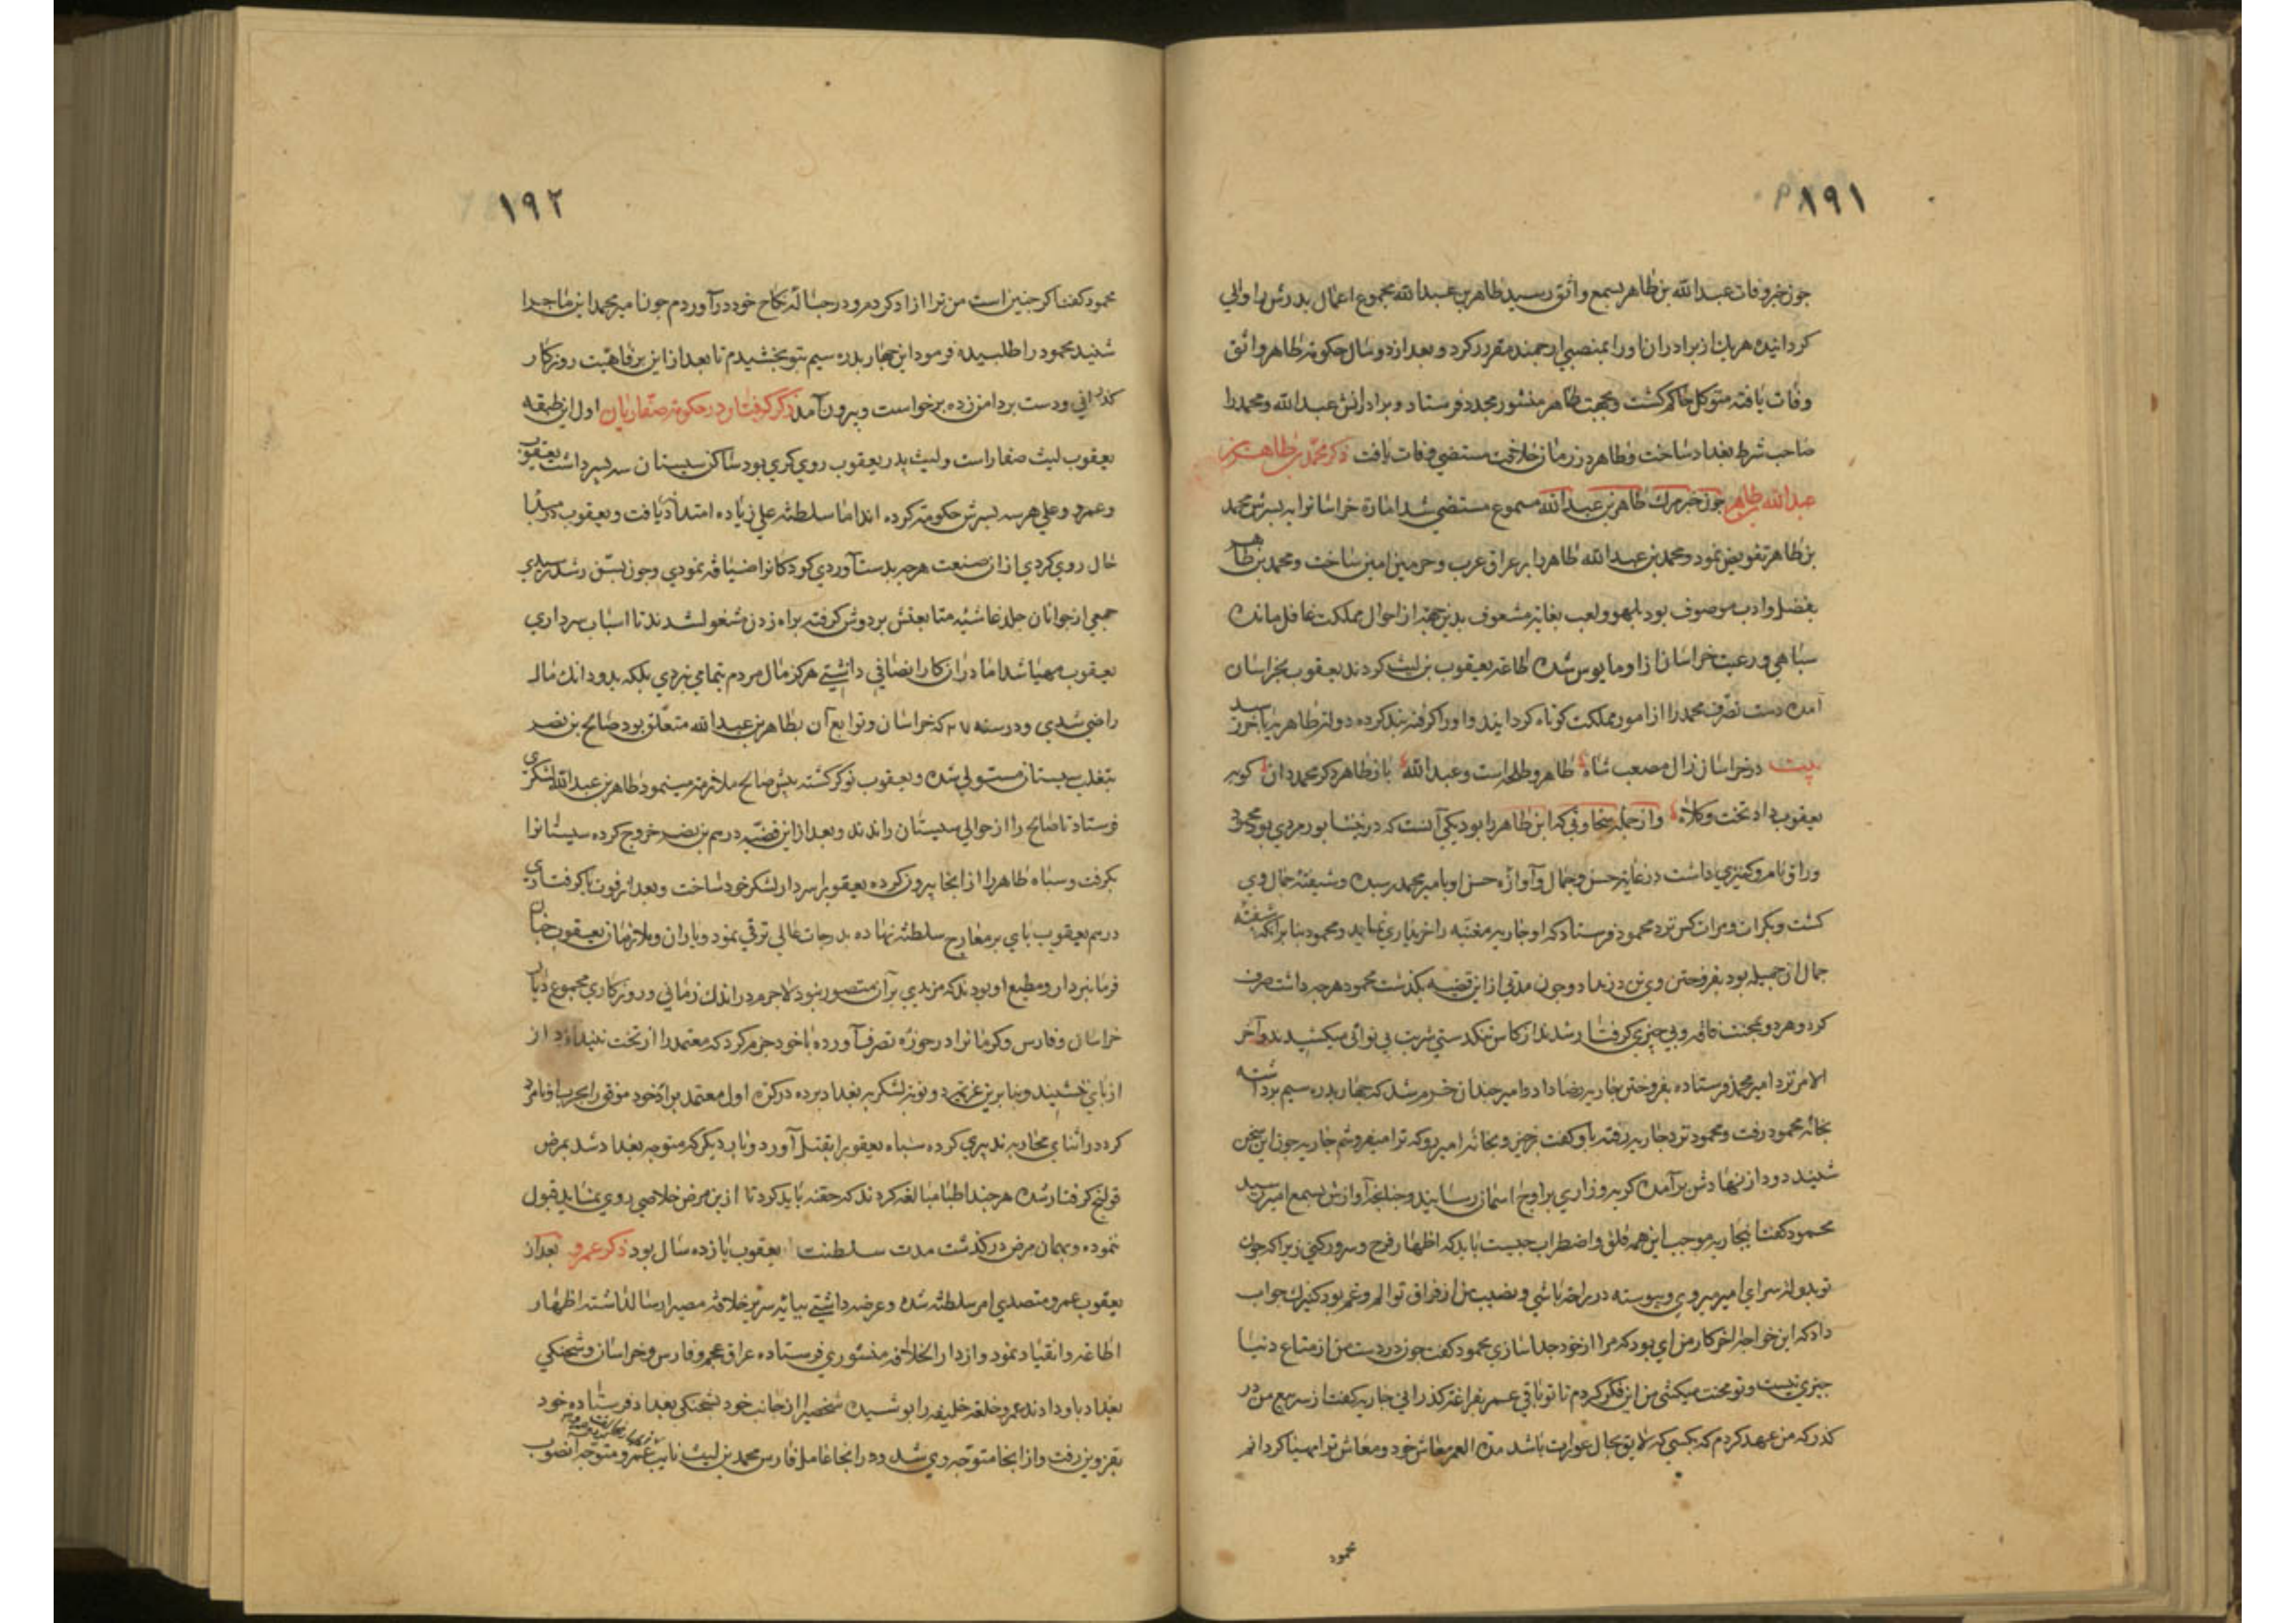 ١٩١
چون خبر وفات عبدالله بن طاهر بسمع واثق رسید طاهر بن عبدالله بمجموع اعمال پدرش را والی
کردانیده هریک از برادران او را بمنصبی ارجمند مقرر کرد و بعد از دو سال حکومة طاهر واثق
وفات یافته متوکل حاکم کشت و بجهت طاهر منشور مجدد فرستاد و برادرانش عبدالله و محمد را
صاحب شرط بغداد ساخت و طاهر در زمان خلافت مستضی وفات یافت ذکر محمد بن طاهر بن
عبدالله طاهر چون خبر مرك طاهر بن عبدالله مسموع مستضی شد امارة خراسانرا به پسرش محمد
بن طاهر تفویض نمود و محمد بن عبدالله طاهر را بر عراق عرب و حرمین امین ساخت و محمد بن طاهر
بفضل و ادب موصوف بود بلهو و لعب بغایة مشعوف بدین جهة از احوال مملکت غافل مانده
سپاهی و رعیت خراسان از او مایوس شده اطاعة یعقوب بن لیث کردند یعقوب بخراسان
آمده دست تصرف محمد را از امور مملکت کوتاه کردانید و او را کرفته بند کرده دولة طاهریه بآخر رسید
بیت در خراسان ز آل مصعب شاه طاهر و طلحه است و عبدالله باز طاهر دکر محمد دان کو به
یعقوب داد تخت و کلاه و از جمله سخاوتی که ابن طاهر را بود یکی آنست که در نیشابور مردی بود محمود
وراق نام و کنیزی داشت در غایة حسن و جمال و آوازه حسن او بامیر محمد رسیده و شیفته جمال وی
کشت و بکرات و مرات کس نزد محمود فرستاد که او جاریه مغنیه را خریداری نماید و محمود بنا بر آنکه شیفته
جمال آن جمیله بود بفروختن وی تن در نداد و چون مدتی از این قضیه بکذشت محمود هرچه داشت صرف
کرد و هر دو بمحنت فاقه و بی چیزی کرفتار شدند از کاس تنکدستی شربت بی نوائی میکشیدند و آخر
الامر نزد امیر محمد فرستاده بفروختن جاریه رضا داد و امیر چندان خرم شد که چهار بدره سیم برداشته
بخانه محمود رفت و محمود نزد جاریه رفته باو کفت برخیز و بخانه امیر رو که ترا میفروشم جاریه چون این سخن
شنید دود از نهادش برآمده کریه و زاری بر اوج آسمان رسانید و چنانچه آوازش بسمع امیر رسید
محمود کفت ایجاریه موجب این همه قلق و اضطراب چیست باید که اظهار فرح و سرور کنی زیرا که چون
تو بدولتسرای امیر میروی و پیوسته در راحة باشی و نصیب من از فراق تو الم و غم بود کنیزك جواب
داد که این خواجه آخر کار من ای بود که مرا از خود جدا سازی محمود کفت چون در دست من از متاع دنیا
چیزی نیست و تو محنت میکشی من این فکر کردم تا تو باقی عمر بفراغة کذرانی جاریه کفت از سر بیع من در
کذر که من عهد کردم که بکسبی که لایق بحال عورات باشد مدة العمر معاش خود و معاش ترا مهیا کردانم
محمود
١٩٢
محمود کفت اکر چنین است من ترا ازاد کردم و در حباله نکاح خود درآوردم چون امیر محمد این ماجرا
شنید محمود را طلبیده فرمود این چهار بدره سیم بتو بخشیدم تا بعد از این برفاهیت روزکار
کذرانی و دست بر دامن زده برخواست و بیرون آمد ذکر کفتار در حکومة صفاریان اول از طبقه
یعقوب لیث صفار است و لیث پدر یعقوب روی کری بود ساکن سیستان سه پسر داشت یعقوب
و عمرو و علی هر سه پسرش حکومة کرده اند اما سلطنة علی زیاده امتداد نیافت و یعقوب در مبدا
حال روی کردی از آن صنعت هرچه بدست آوردی کودکانرا ضیافة نمودی و چون بسن رشد رسیدی
جمعی از جوانان جلد غاشیه متابعتش بر دوش کرفته براه زدن مشغول شدند تا اسباب سرداری
یعقوب مهیا شد اما در آن کار انصافی داشتی هرکز مال مردم بتمامی نبردی بلکه بدو دانك مال
راضی شدی و در سنه ٢٠٧ که خراسان و توابع آن بطاهر بن عبدالله متعلق بود صالح بن نضر
بتغلب سیستان مستولی شده و یعقوب نوکر کشته پیش صالح ملازمة مینمود طاهر بن عبدالله لشکری
فرستاد تا صالح را از حوالی سیستان راندند و بعد از این قضیه درهم بن نضر خروج کرده سیستانرا
بکرفت و سپاه طاهر را از انجا بیرون کرده یعقوب را سردار لشکر خود ساخت و بعد از فوت یا کرفتاری
درهم یعقوب پای بر معارج سلطنة نهاده بدرجات عالی ترقی نمود و یاران و ملازمان یعقوب چنان
فرمانبردار و مطیع او بودند که مزیدی بر آن متصور نبود لاجرم در اندك زمانی و روزکاری مجموع دیار
خراسان و فارس و کرمانرا در حوزه تصرف آورده با خود جزم کرد که معتمد را از تخت نیندازد از
از پای ننشیند و بنا برین عزیمة دو نوبة لشکر به بغداد برده در کرة اول معتمد برادر خود موفق را بحرب او نامزد
کرد در اثنای محاربه تدبیری کرده سپاه یعقوب را بقتل آورد و بار دیکر که متوجه بغداد شد بمرض
قولنج کرفتار شده هرچند اطبا مبالغه کردند که حقنه باید کرد تا ازین مرض خلاصی روی نماید قبول
ننموده و بهمان مرض درکذشت مدت سلطنت یعقوب یازده سال بود ذکر عمرو بعد از
یعقوب عمرو متصدی امر سلطنة شده و عرضه داشتی بپایه سریر خلافة مصیر ارسال داشته اظهار
اطاعة و انقیاد نمود و از دار الخلافه منشوری فرستاده عراق عجم و فارس و خراسان و شحنکی
بغداد باو دادند عمرو خلعة خلیفه را پوشیده شخصی را از جانب خود بشحنکی بغداد فرستاده خود
بقزوین رفت و از انجا متوجه ری شد و در انجا عامل فارس محمد بن لیث نایب عمرو متوجه آنصوب